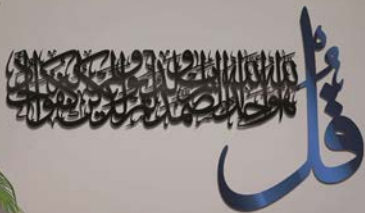 قُلْ هُوَ اللهُ أَحَدٌ اللهُ الصَّمَدُ لَمْ يَلِدْ وَلَمْ يُولَدْ وَلَمْ يَكُنْ لَهُ كُفُوًا أَحَدٌ